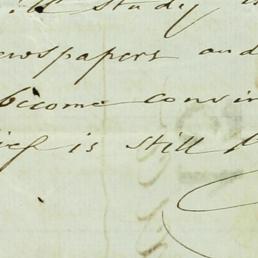 study
newspapers and
become convin
ief is still